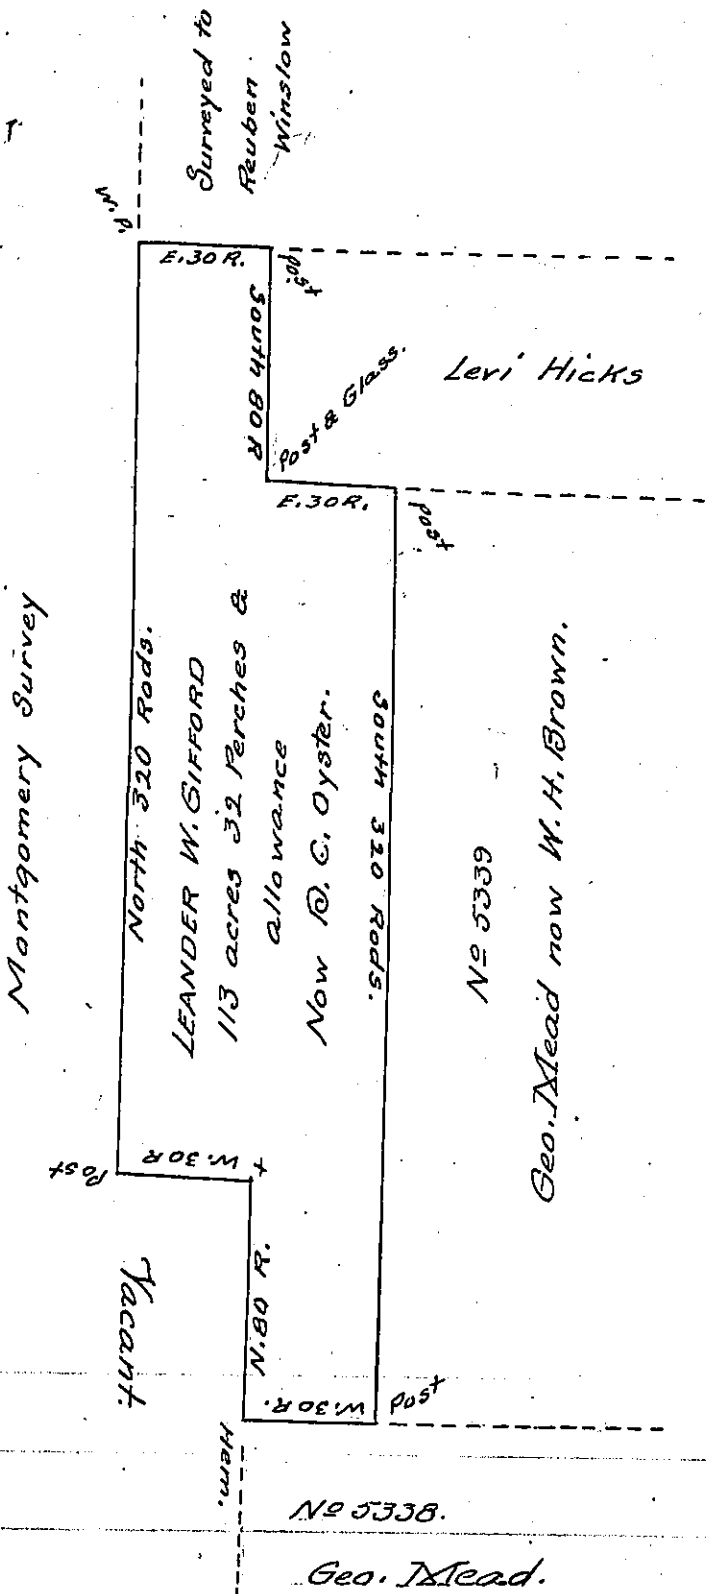 Surveyed to
Reuben
Winslow
W.P.
E. 30 R.
Post
South 80 R
Post & Glass.
Levi Hicks
E. 30 R.
Post
Montgomery Survey
North 320 Rods.
LEANDER W. GIFFORD
113 acres 32 Perches &
allowance
Now D. C. Oyster.
South 320 Rods.
No 5339
Geo. Mead now W. H. Brown.
Post
W. 30 R
+
Vacant.
N. 80 R.
W. 30 R.
Post
Hem.
No 5338.
Geo. Mead.